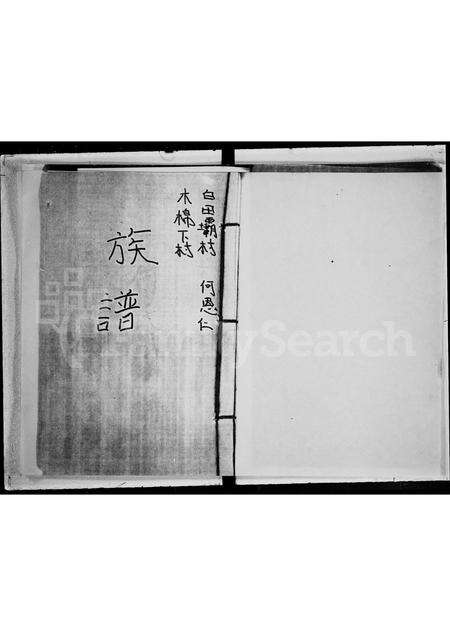 白田壩村 何恩仁
木棉下村
族譜
FamilySearch